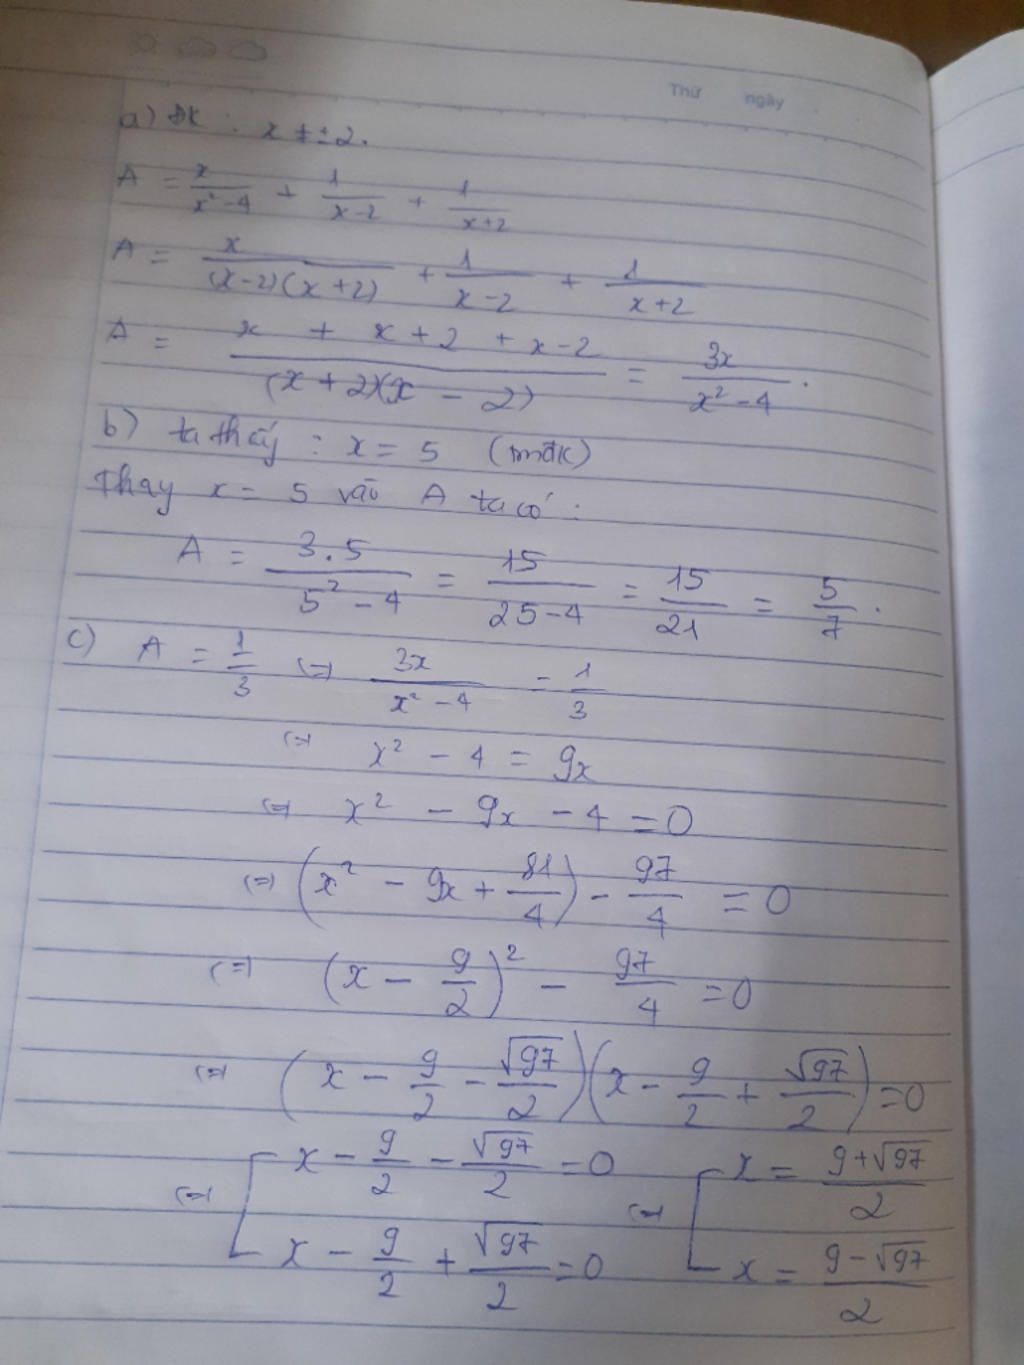 Thứ ngày
a) ĐK : x ≠ ±2.
A = x/(x²-4) + 1/(x-2) + 1/(x+2)
A = x/((x-2)(x+2)) + 1/(x-2) + 1/(x+2)
A = (x + x+2 + x-2)/((x+2)(x-2)) = 3x/(x²-4).
b) ta thấy : x = 5 (tmđk)
Thay x = 5 vào A ta có :
A = 3.5/(5²-4) = 15/(25-4) = 15/21 = 5/7.
c) A = 1/3 (=) 3x/(x²-4) = 1/3
(=) x² - 4 = 9x
(=) x² - 9x - 4 = 0
(=) (x² - 9x + 81/4) - 97/4 = 0
(=) (x - 9/2)² - 97/4 = 0
(=) (x - 9/2 - √97/2)(x - 9/2 + √97/2) = 0
(=) [ x - 9/2 - √97/2 = 0 (=) [ x = (9+√97)/2
x - 9/2 + √97/2 = 0 x = (9-√97)/2